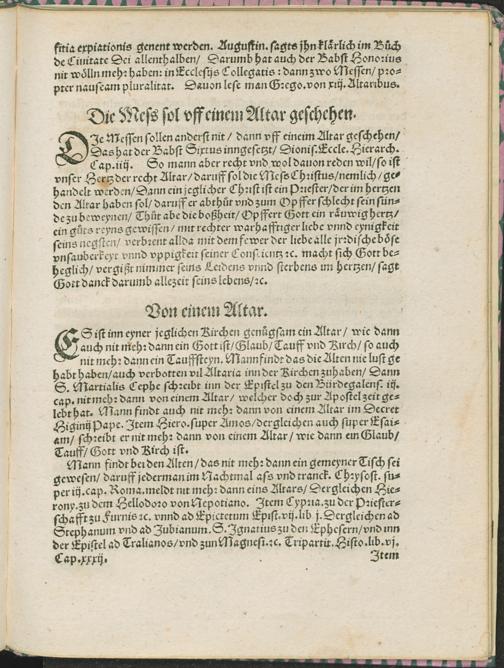 stitia expiationis genent werden. Augustin. sagts jhn klärlich im Bůch
de Civitate Dei allenthalben/ Darumb hat auch der Babst Honorius
nit wölln mehr haben: in Ecclesijs Collegatis: dann zwo Messen/ pro-
pter nauseam pluralitat. Davon lese man Grego. von xij. Altaribus.
Die Mess sol vff einem Altar geschehen.
DIe Messen sollen anderst nit/ dann vff eineim Altar geschehen/
Das hat der Babst Sixtus inngesetzt/ Dionis. Eccle. Hierarch.
Cap. iiij. So mann aber recht vnd wol davon reden wil/ so ist
vnser Hertz der recht Altar/ daruff sol die Mess Christus/ nemlich/ ge-
handelt werden/ Dann ein jeglicher Christ ist ein Priester/ der im hertzen
den Altar haben sol/ daruff er abthůt vnd zum Opffer schlecht sein sün-
de zu beweynen/ Thůt abe die boßheit/ Opffert Gott ein räuwig hertz/
ein gůts reyns gewissen/ mit rechter warhafftiger liebe vnnd eynigkeit
seins negsten/ verbrent allda mit dem fewer der liebe alle jrdische böse
vnsauberkeyt vnnd vppigkeit seiner Conscientz ec. macht sich Gott be-
heglich/ vergißt nimmer seins Leidens vnnd sterbens im hertzen/ sagt
Gott danck darumb allezeit seins lebens/ ec.
Von einem Altar.
ES ist inn eyner jeglichen Kirchen genůgsam ein Altar/ wie dann
auch nit mehr dann ein Gott ist/ Glaub/ Tauff vnd Kirch/ so auch
nit mehr dann ein Tauffsteyn. Mann findt das die Alten nie lust ge
habt haben/ auch verbotten vil Altaria inn der Kirchen zuhaben/ Dann
S. Martialis Cephe schreibt inn der Epistel zu den Bürdegalens. ij.
cap. nit mehr dann von einem Altar/ welcher doch zur Apostel zeit ge-
lebt hat. Mann findt auch nit mehr dann von einem Altar im Decret
Higinij Pape. Item Hiero. super Amos/ dergleichen auch super Esai-
am/ schreibt er nit mehr dann von einem Altar/ wie dann ein Glaub/
Tauff/ Gott vnd Kirch ist.
Mann findt bei den Alten/ das nit mehr dann ein gemeyner Tisch sei
gewesen/ daruff jederman im Nachtmal ass vnd tranck. Chrysost. su-
per ij. cap. Roma. meldt nit mehr dann eins Altars/ Dergleichen Hie-
rony. zu dem Hellodoro von Nepotiano. Item Cypria. zu der Priester-
schafft zu Furnis ec. vnnd ad Epictetum Epist. vij. lib. j. Dergleichen ad
Stephanum vnd ad Jubianum. S. Ignatius zu den Ephesern/ vnd inn
der Epistel ad Tralianos/ vnd zun Magnesi. ec. Tripartit. Histo. lib. vj.
Cap. xxxij.
Item